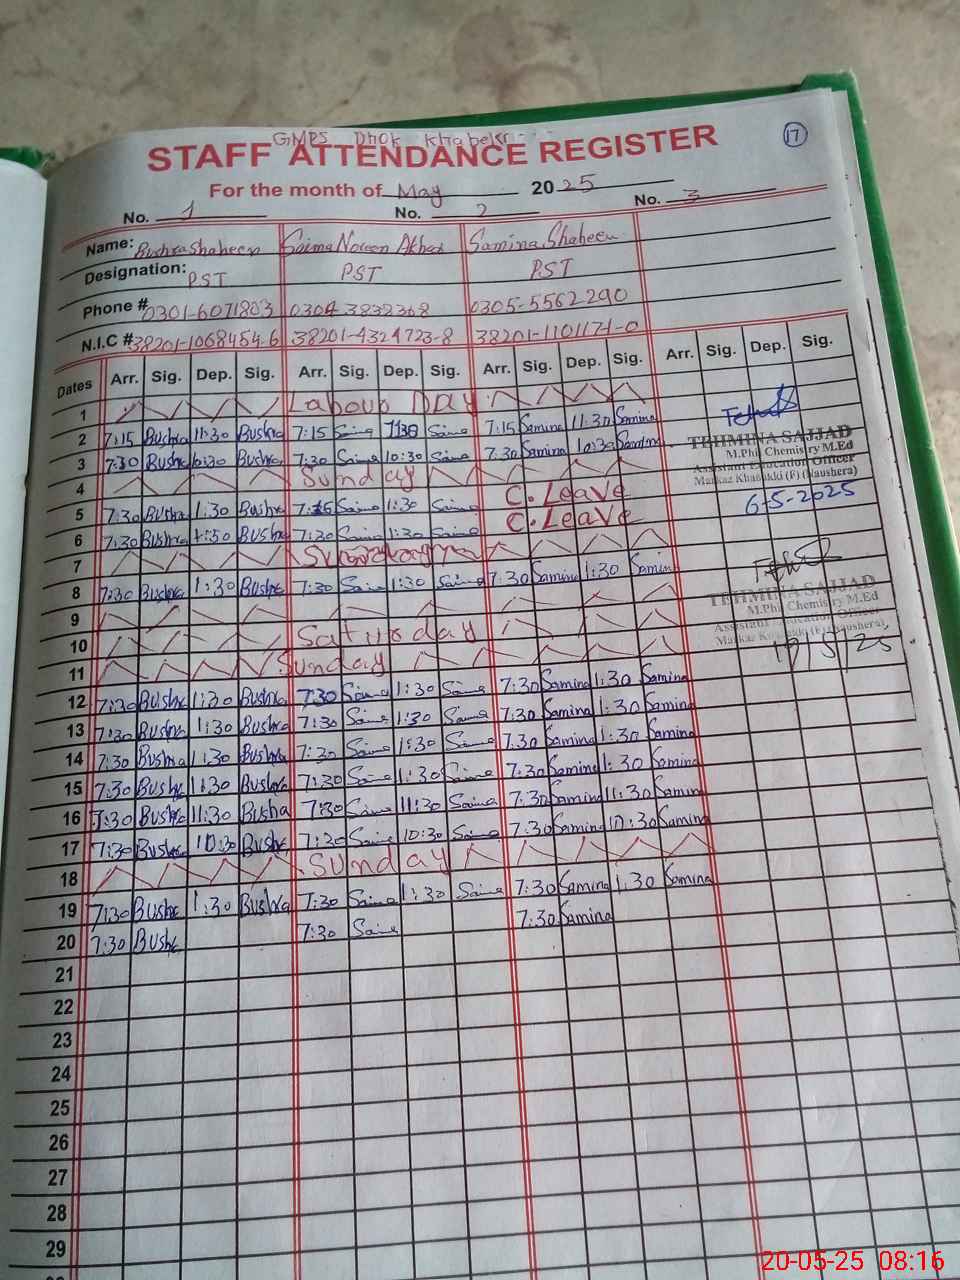 GMPS Dhok Khabeki
17
STAFF ATTENDANCE REGISTER
For the month of May 2025
No. 1 No. 2 No. 3
Name: Bushra Shaheen Saima Noreen Samina Shaheen
Designation: PST PST PST
Phone # 0301-6071803 0304 3832368 0305-5562290
N.I.C # 38201-1068454-6 38201-4324723-8 38201-1101171-0
Dates Arr. Sig. Dep. Sig. Arr. Sig. Dep. Sig. Arr. Sig. Dep. Sig. Arr. Sig. Dep. Sig.
1 Labour Day
2 7:15 Bushra 11:30 Bushra 7:15 Saima Saima 7:15 Samina 11:30 Samina
3 7:30 Bushra 10:30 Bushra 7:30 Saima 10:30 Saima 7:30 Samina 10:30 Samina
4 Sunday
5 7:30 Bushra 1:30 Bushra Saima 1:30 Saima C. Leave
6 7:30 Bushra Bushra 7:30 Saima 1:30 Saima C. Leave
7
8 7:30 Bushra 1:30 Bushra 7:30 Saima 1:30 Saima 7:30 Samina 1:30 Samina
9
10 Saturday
11 Sunday
12 7:30 Bushra 1:30 Bushra 7:30 Saima 1:30 Saima 7:30 Samina 1:30 Samina
13 7:30 Bushra 1:30 Bushra 7:30 Saima 1:30 Saima 7:30 Samina 1:30 Samina
14 7:30 Bushra 1:30 Bushra 7:30 Saima 1:30 Saima 7:30 Samina 1:30 Samina
15 7:30 Bushra 1:30 Bushra 7:30 Saima 1:30 Saima 7:30 Samina 1:30 Samina
16 7:30 Bushra 11:30 Busha 7:30 Saima 11:30 Saima 7:30 Samina 11:30 Samina
17 7:30 Bushra 10:30 Bushra 7:30 Saima 10:30 Saima 7:30 Samina 10:30 Samina
18 Sunday
19 7:30 Bushra 1:30 Bushra 7:30 Saima 1:30 Saima 7:30 Samina 1:30 Samina
20 7:30 Bushra 7:30 Saima 7:30 Samina
21
22
23
24
25
26
27
28
29
TEHMINA SAJJAD
M.Phil Chemistry M.Ed
Assistant Education Officer
Markaz Khabakki (F) (Naushera)
6-5-2025
TEHMINA SAJJAD
M.Phil Chemistry M.Ed
Assistant Education Officer
Markaz Khabakki (F) (Naushera)
20-05-25 08:16